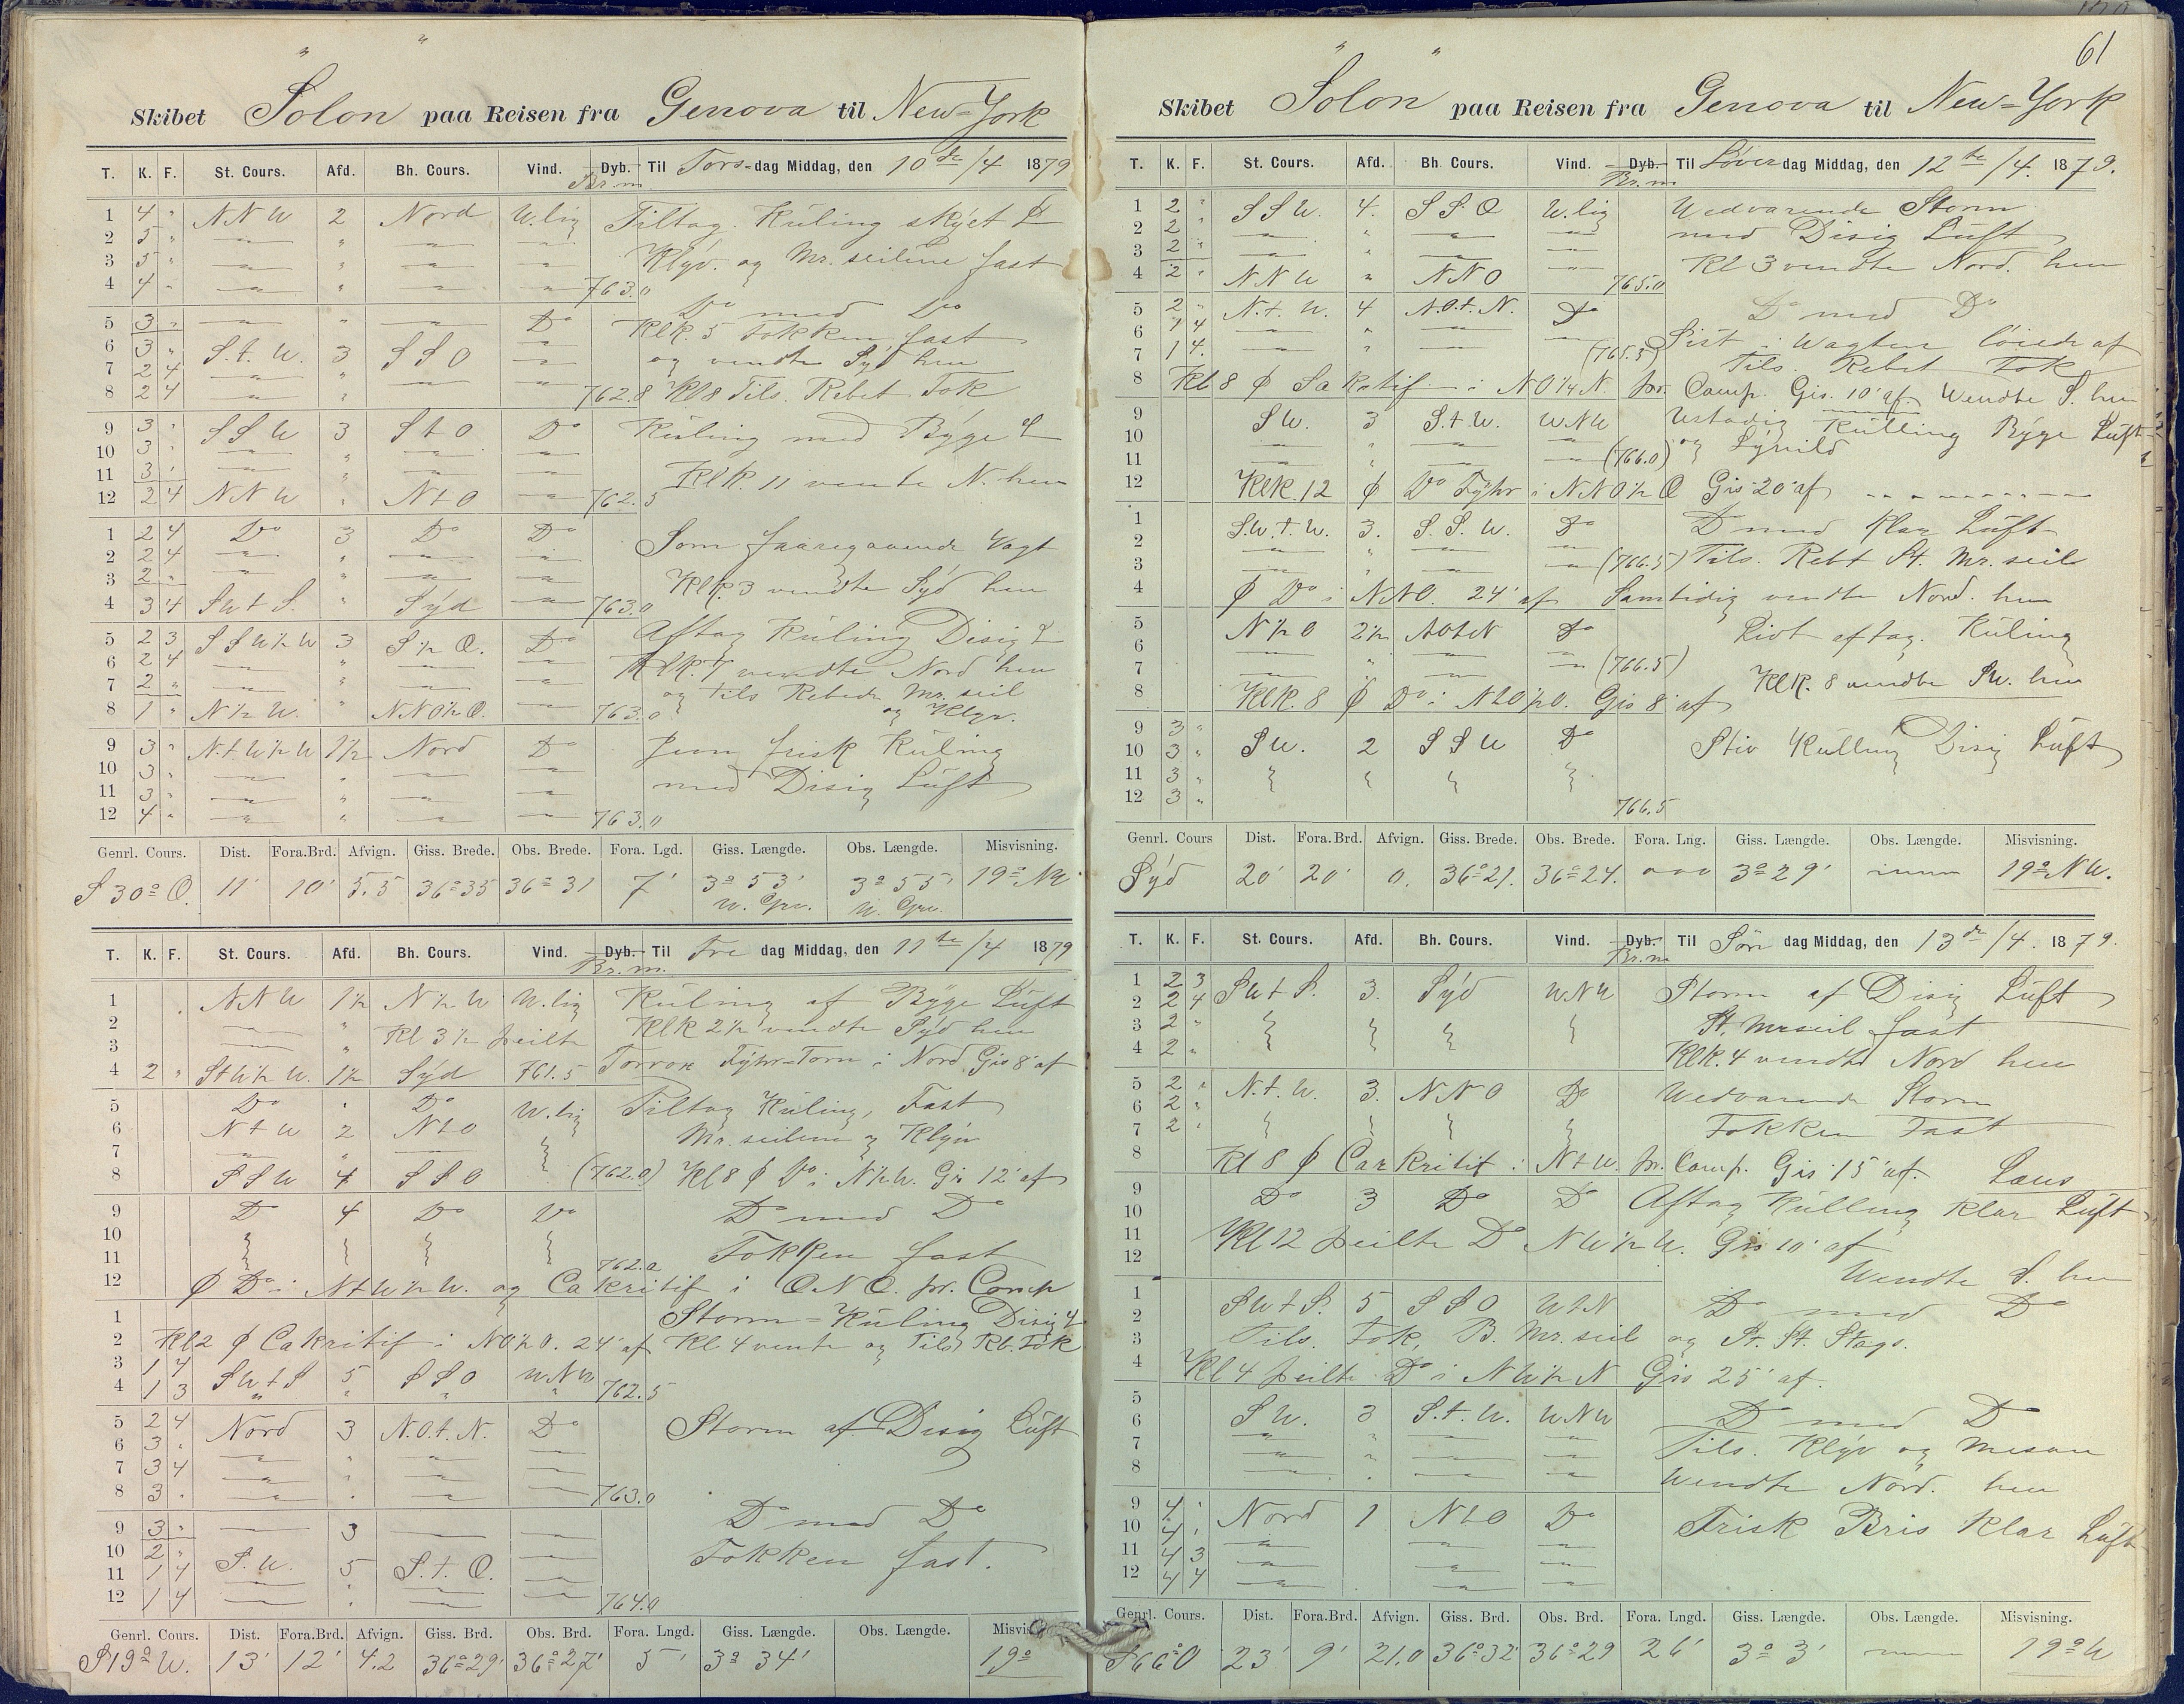 61
Skibet "Solon" paa Reisen fra Genova til New=York
T. K. F. St. Cours. Afd. Bh. Cours. Vind. Dyb. Br.m. Til Tors-dag Middag, den 10de/4 1879
1 4 " NNW 2 Nord W.lig Tiltag. Küling skyet L
2 5 "
3 5 " Klyv. og Mr. seilene fast
4 4 " 763.0
5 3 " Do Do med Do
6 3 " S.t.W. 3 SSO Klk. 5 Fokken fast
7 2 4 og vendte Syd hen
8 2 4 762.8 Kl 8 Tils. Rebet Fok
9 3 " SSW 3 StO Do Küling med Byge L
10 3 "
11 3 " Klk. 11 vente N. hen
12 2 4 NNW " NtO 762.5
1 2 4 Do 3 Do Do Som faaregaaende Vagt
2 2 4
3 2 " Klk. 3 vendte Syd hen
4 3 4 SWtS. " Syd 763.0
5 2 3 SSW½W 3 S½O. Do Aftag Küling Disig L
6 2 4 Klk. 7 vendte Nord hen
7 2 " og Tils Rebede Mr. seil
8 1 " N½W. " NNO½O. 763.0 og Klyv.
9 3 " N.tW½W 1½ Nord Do Jevn frisk Küling
10 3 "
11 3 " med Disig Lüft
12 4 " 763.0
Genrl. Cours. Dist. Fora.Brd. Afvign. Giss. Brede. Obs. Brede. Fora. Lgd. Giss. Længde. Obs. Længde. Misvisning.
S 30° O. 11' 10' 5.5 36°35 36°31 7' 3°53' W. Grv. 3°55' W. Grv. 19° NW
T. K. F. St. Cours. Afd. Bh. Cours. Vind. Dyb. Br.m. Til Fre dag Middag, den 11te/4 1879
1 NNW 1½ N½W W.lig Küling af Byge Lüft
2 " Kl 3½ peilte Klk 2½ vendte Syd hen
3 Torrox Fyhr-Torn i Nord Gis 8' af
4 2 " StW½W. 1½ Syd 761.5
5 Do " Do W.lig Tiltag Küling, Fast
6 NtW 2 NtO Mr. seilene og Klyv
7
8 SSW 4 SSO (762.0) Kl 8 ϕ Do i N½W. Gis 12' af
9 Do 4 Do Do Do med Do
10
11 762.0 Fokken fast
12 ϕ Do i NtW½W. og Cakritif i ONO. pr. Comp
1 Storm=Küling Disig L
2 Kl 2 ϕ Cakritif i NO½O. 24' af Kl 4 vente og Tils Rb. Fok
3 1 4 SWtS 5 SSO WNW
4 1 3 " " " " 762.5
5 2 4 Nord 3 N.O.t.N. Do Storm af Disig Lüft
6 3 "
7 3 4
8 3 " 763.0
9 3 " 3 Do med Do
10 2 "
11 1 4 S.W. 5 S.t.O. Fokken fast.
12 1 4 764.0
Genrl. Cours. Dist. Fora.Brd. Afvign. Giss. Brd. Obs. Brd. Fora. Lngd. Giss. Længde. Obs. Længde. Misvisn
S19° W. 13' 12' 4.2 36°29' 36°27' 5' 3° 34' 19°
Skibet "Solon" paa Reisen fra Genova til New=York
T. K. F. St. Cours. Afd. Bh. Cours. Vind. Dyb. Br.m Til Löver dag Middag, den 12te/4. 1879.
1 2 " SSW. 4. SSO W.lig Wedvarende Storm
2 2 " med Disig Lüft
3 2 " Kl 3 vendte Nord. hen
4 2 " NNW " NNO 765.0
5 2 " N.t.W. 4 N.O.t.N. Do Do med Do
6 1 4 Sist i Wagten löiede af
7 1 4. (765.5) Tils. Rebet Fok
8 Kl 8 ϕ Sakratif i NO¼N. pr. Comp. Gis. 10' af. Wendte S. hen
9 SW. 3 S.t.W. WNW Ustadig Külling Byge Lüft
10 og Lynild
11 (766.0)
12 Klk. 12 ϕ Do Fyhr i NNO½O Gis 20' af
1 S.W.t.W. 3. S.S.W. Do Do med Klar Lüft
2
3 (766.5) Tils. Rebt St. Mr. seil
4 ϕ Do i NNO. 24' af Samtidig vendte Nord. hen
5 N½O 2½ NOtN Do Livt aftag. Küling
6
7 (766.5)
8 Klk. 8 ϕ Do i NtO½O. Gis 8' af Klk. 8 vendte SW. hen
9 3 "
10 3 " SW. 2 SSW Do Stiv Külling Disig Lüft
11 3 "
12 3 " 766.5
Genrl. Cours Dist. Fora.Brd. Afvign. Giss. Brede. Obs. Brede. Fora. Lng. Giss. Længde. Obs. Længde. Misvisning.
Syd 20' 20' 0. 36°21. 36°24. 000 3°29' 19° NW.
T. K. F. St. Cours. Afd. Bh. Cours. Vind. Dyb. Br.m Til Sön dag Middag, den 13de/4. 1879.
1 2 3 SWtS. 3. Syd WNW Storm af Disig Lüft
2 2 4
3 2 " St. Mrseil fast
4 2 " Klk. 4 vendte Nord hen
5 2 " N.t.W. 3. NNO Do Wedvarende Storm
6 2 "
7 2 " Fokken Fast
8 Kl 8 ϕ Carkritif i NtW. pr. Comp. Gis 15' af.
9 Do 3 Do Do Aftag Külling Klar Lüft
10
11 Kl 12 peilte Do NW½W. Gis 10' af
12 Wendte S. hen
1 SWtS. 5 SSO WtN Do med Do
2
3 Tils. Fok, B. Mr. seil og St. St. Stags.
4 Kl 4 peilte Do i NW½N Gis 25' af.
5
6 SW. 3 S.t.W. WNW Do med Do
7 Tils. Klyv og Mesan
8 Wendte Nord. hen
9 4 "
10 4 " Nord 1 NtO Do Frisk Bris Klar Lüft
11 4 3
12 4 4
Genrl. Cours. Dist. Fora.Brd. Afvign. Giss. Brd. Obs. Brd. Fora. Lngd. Giss. Længde. Obs. Længde. Misvisning.
S66°O 23' 9' 21.0 36°32' 36°29 26' 3° 3' 19° W